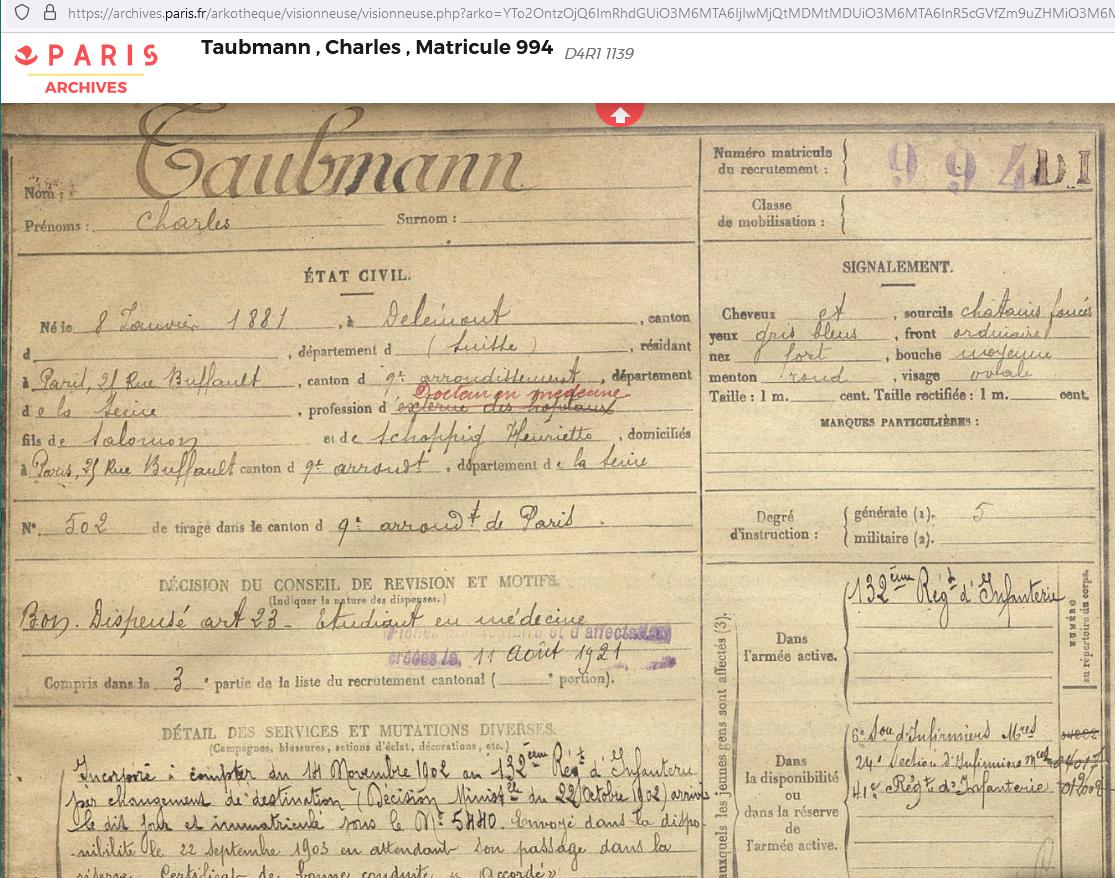 https://archives.paris.fr/arkotheque/visionneuse/visionneuse.php?arko=
PARIS
ARCHIVES
Taubmann , Charles , Matricule 994 D4R1 1139
Nom : Taubmann
Prénoms : Charles Surnom :
Numéro matricule
du recrutement : 994 DI
Classe
de mobilisation :
ÉTAT CIVIL.
Né le 8 Janvier 1881 , à Delémont , canton
d , département d (Suisse) , résidant
à Paris, 21 Rue Buffault , canton d 9e arrondissement , département
Docteur en médecine
de la Seine , profession d externe des hôpitaux
fils de Salomon et de Schoppig Henriette , domiciliés
à Paris, 21 Rue Buffault canton d 9e arrondt , département de la Seine
N°. 502 de tirage dans le canton d 9e arrondt de Paris .
SIGNALEMENT.
Cheveux et , sourcils châtains foncés
yeux gris bleus , front ordinaire
nez fort , bouche moyenne
menton rond , visage ovale
Taille : 1 m. cent. Taille rectifiée : 1 m. cent.
MARQUES PARTICULIÈRES :
Degré
d'instruction :
générale (1). 5
militaire (2).
DÉCISION DU CONSEIL DE REVISION ET MOTIFS.
(Indiquer la nature des dispenses.)
Bon. Dispensé art 23 - Etudiant en médecine
et d'affectation
créées le, 11 Août 1921
Compris dans la 3e partie de la liste du recrutement cantonal ( e portion).
DÉTAIL DES SERVICES ET MUTATIONS DIVERSES.
(Campagnes, blessures, actions d'éclat, décorations, etc.)
Incorporé à compter du 14 Novembre 1902 au 132ème Régt d'Infanterie
par changement de destination (Décision Ministlle du 22 Octobre 1902) arrivé
le dit jour et immatriculé sous le N° 5440. Envoyé dans la dispo-
nibilité le 22 Septembre 1903 en attendant son passage dans la
réserve. Certificat de bonne conduite « Accordé »
auxquels les jeunes gens sont affectés (3).
Dans
l'armée active.
132ème Régt d'Infanterie
NUMÉRO
au répertoire du corps.
Dans
la disponibilité
ou
dans la réserve
de
l'armée active.
6e Son d'Infirmiers Mres
24e Section d'Infirmiers Mres
41e Régt d'Infanterie